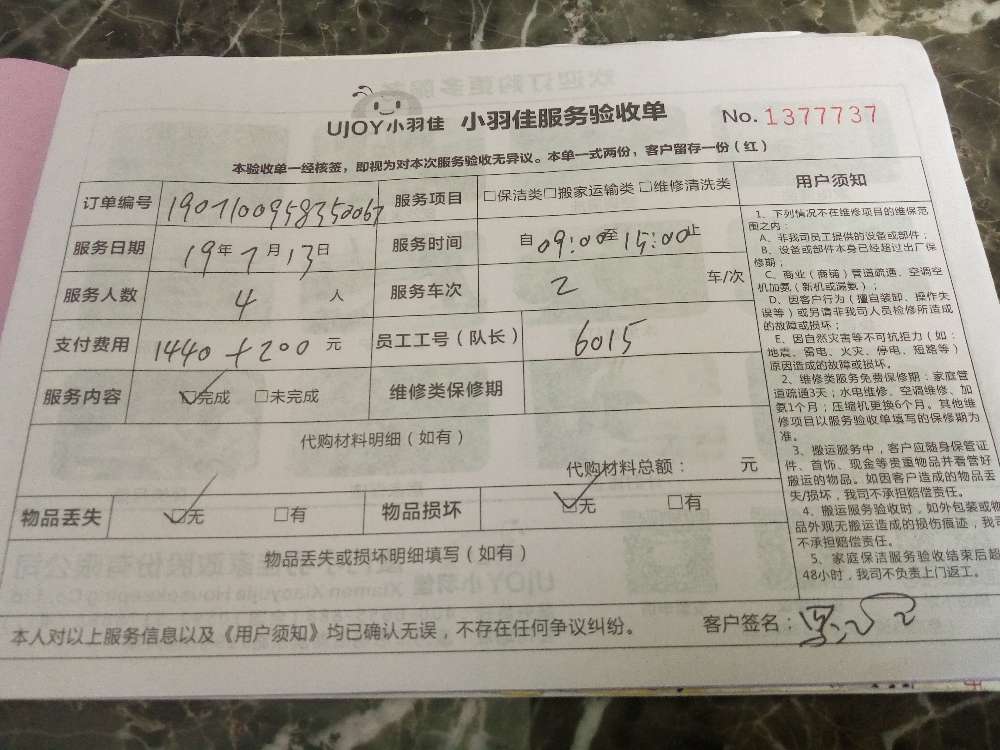 UJOY小羽佳 小羽佳服务验收单 No. 1377737
本验收单一经核签，即视为对本次服务验收无异议。本单一式两份，客户留存一份（红）
订单编号 1907100958350067 服务项目 □保洁类□搬家运输类 □维修清洗类
服务日期 19年7月13日 服务时间 自09:00至15:00止
服务人数 4 人 服务车次 2 车/次
支付费用 1440+200 元 员工工号（队长） 6015
服务内容 ☑完成 □未完成 维修类保修期
代购材料明细（如有）
代购材料总额： 元
物品丢失 ☑无 □有 物品损坏 ☑无 □有
物品丢失或损坏明细填写（如有）
用户须知
1、下列情况不在维修项目的维保范
围之内：
A、非我司员工提供的设备或部件；
B、设备或部件本身已经超过出厂保
修期；
C、商业（商铺）管道疏通、空调空
机加氨（新机或漏氨）；
D、因客户行为（擅自装卸、操作失
误等）或另请非我司人员检修所造成
的故障或损坏；
E、因自然灾害等不可抗拒力（如：
地震、雷电、火灾、停电、短路等）
原因造成的故障或损坏。
2、维修类服务免费保修期：家庭管
道疏通3天；水电维修、空调维修、加
氨1个月；压缩机更换6个月。其他维
修项目以服务验收单填写的保修期为
准。
3、搬运服务中，客户应随身保管证
件、首饰、现金等贵重物品并看管好
搬运的物品。如因客户造成的物品丢
失/损坏，我司不承担赔偿责任。
4、搬运服务验收时，如外包装或物
品外观无搬运造成的损伤痕迹，我司
不承担赔偿责任。
5、家庭保洁服务验收结束后超
48小时，我司不负责上门返工。
本人对以上服务信息以及《用户须知》均已确认无误，不存在任何争议纠纷。 客户签名：